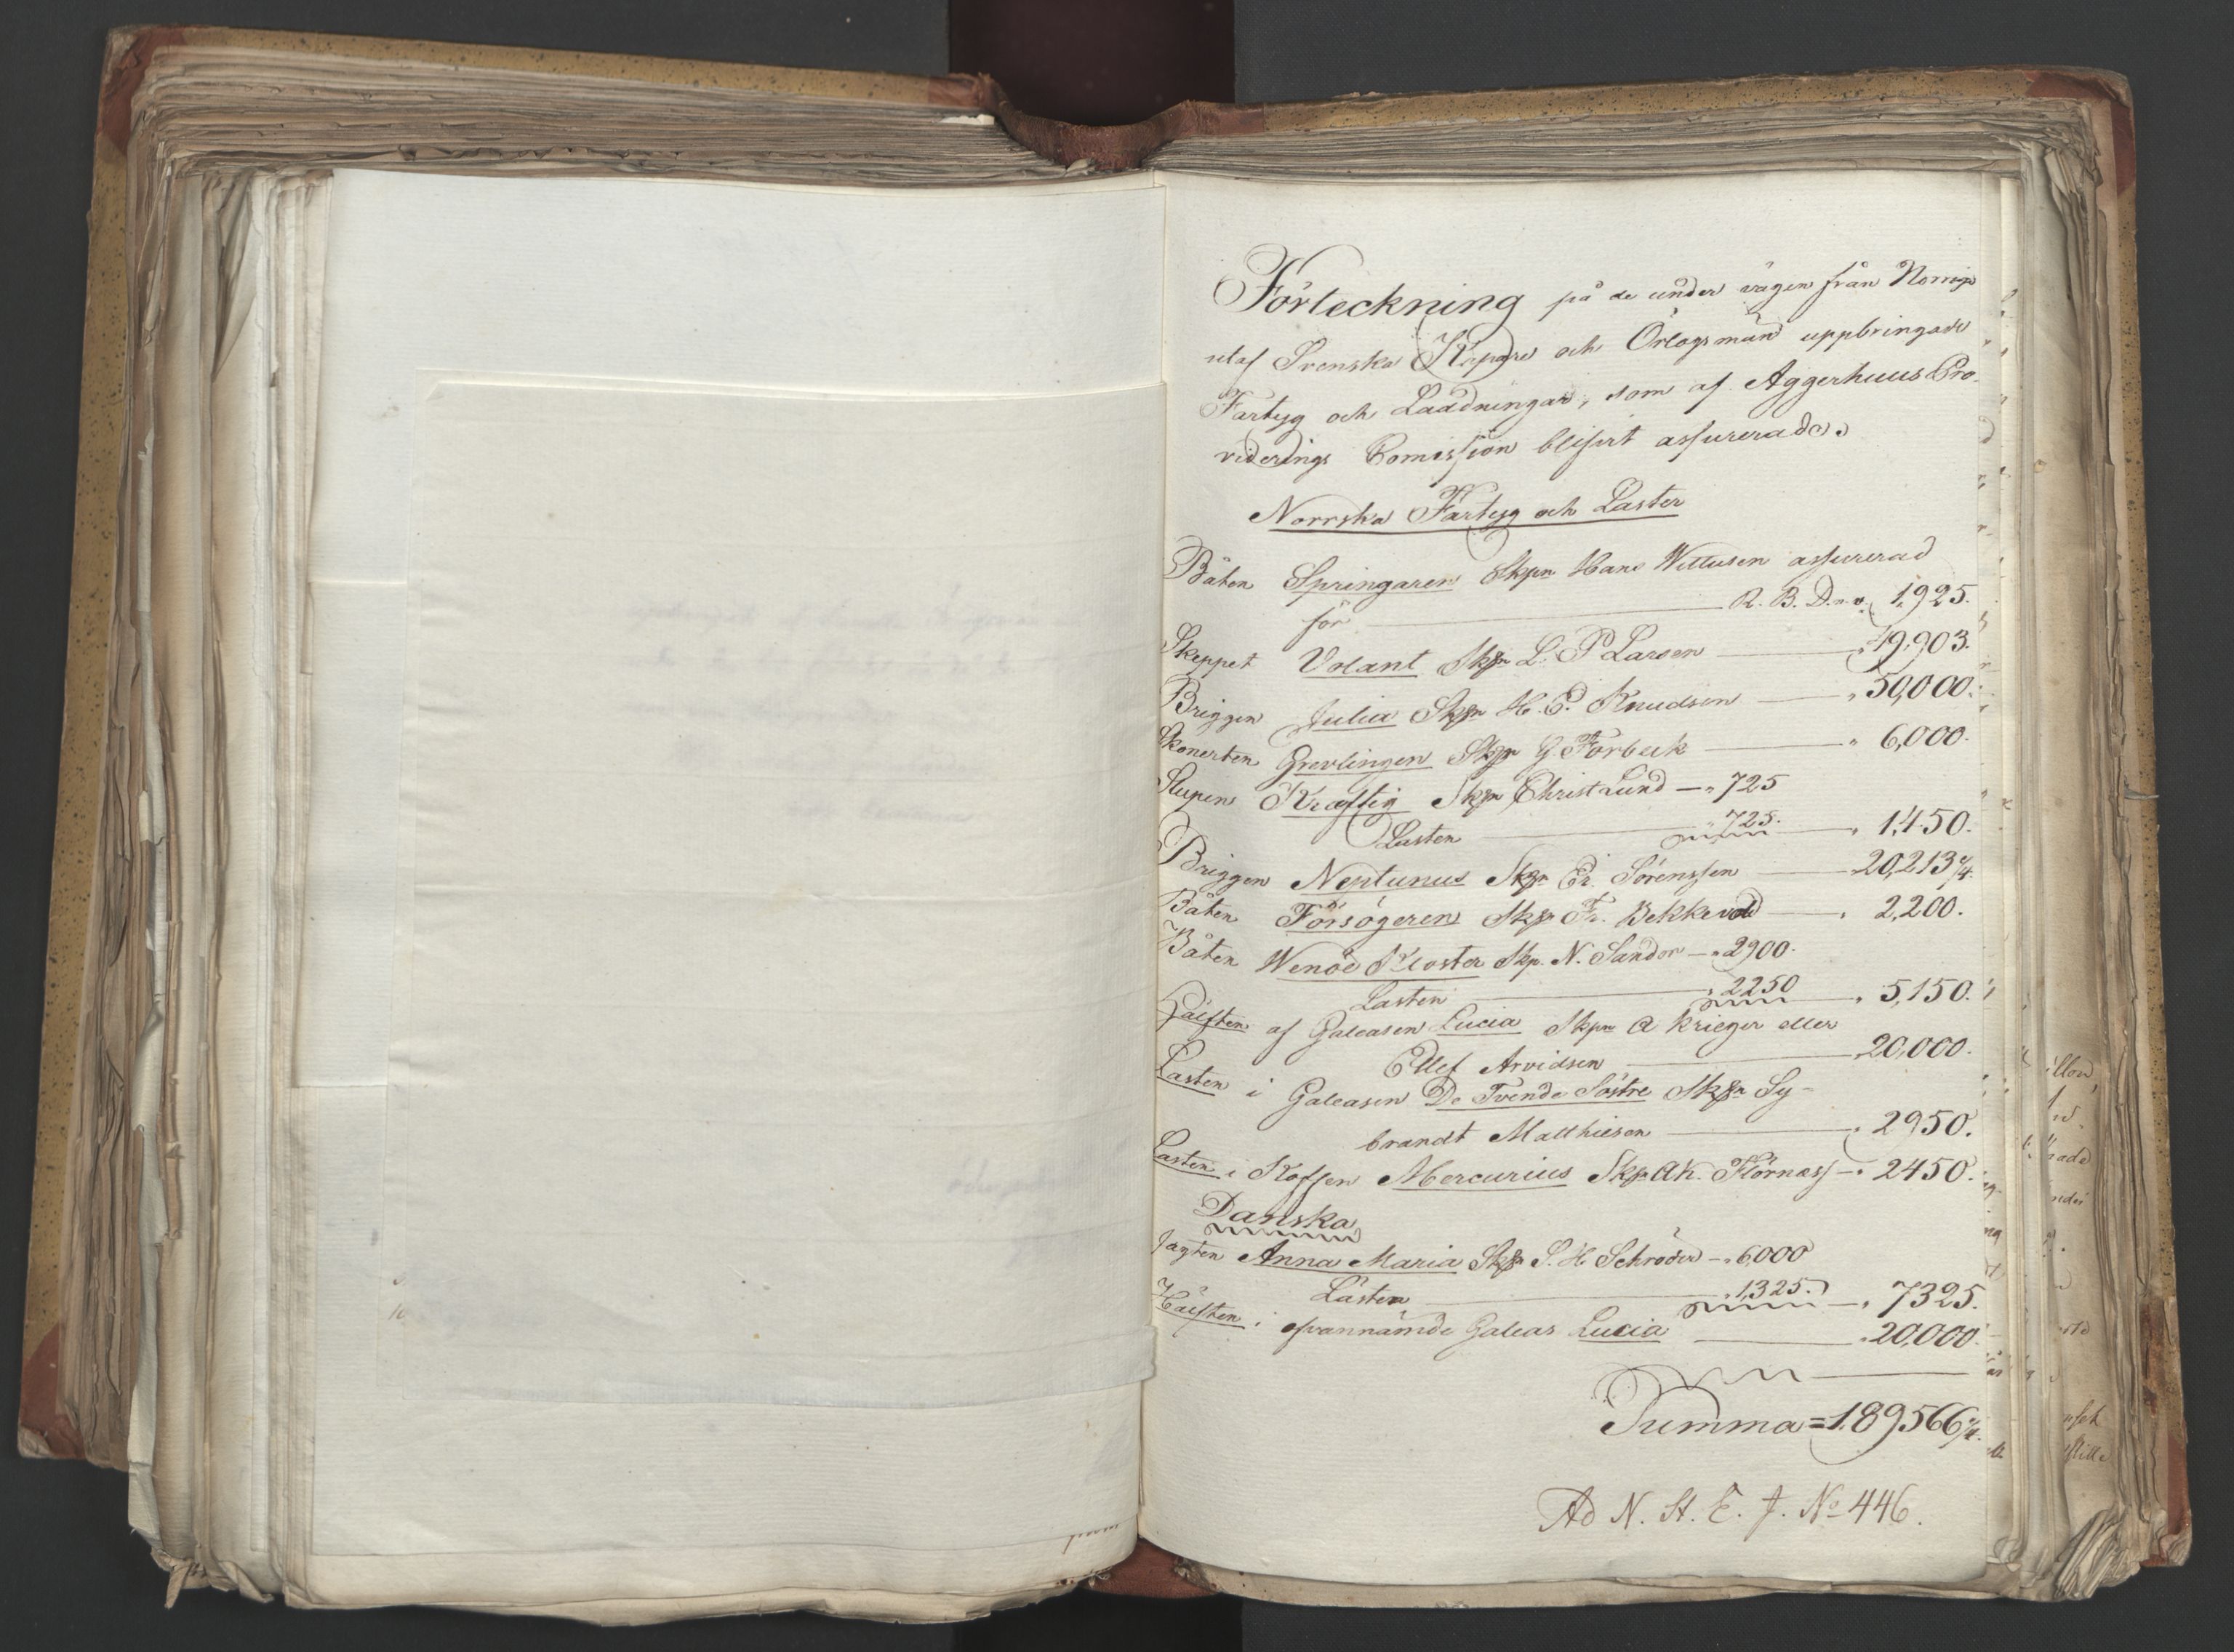 Förteckning på de under vägen från Norrige
utaf Svenska Kapare och Örlogsmän uppbringade
Fartyg och Laddningar, som af Aggerhuus Pro-
viderings Comission blifvit assurerade.
Norrska Fartyg och Laster
Båten Springaren Skpn Hans Wettusen assurerad
för R. B. D. n. v. 1,925.
Skeppet Volant Skpn L. P Larsen 49,903.
Briggen Julia Skpn H. E. Knudsen 50,000.
Skonerten Grevlingen Skpr G Forbech 6,000.
Slupen Kræftig Skpn Christ Lund 725
Lasten 725. 1,450.
Briggen Neptunus Skpr Er. Sörenssen 20,213
Båten Försögeren Skpr Fr. Bekkevold 2,200.
Båten Wenöe Kloster Skp. N. Sandor 2900.
Lasten 2250 5,150.
Hälften af Galeasen Lucia Skpn A Krieger eller
Ellef Arvidsen 20,000.
Lasten i Galeasen De Tvende Söstre Skpr Sy-
brandt Matthiesen 2950.
Lasten i Koffen Mercurius Skpr A K. Flörnæss 2450.
Danska
Jagten Anna Maria Skpr S. H Schröder 6,000
Lasten 1,325. 7325.
Hälften i ofvannämde Galeas Lucia 20,000.
Summa = 189566
Ad N. St. E. J. No 446.